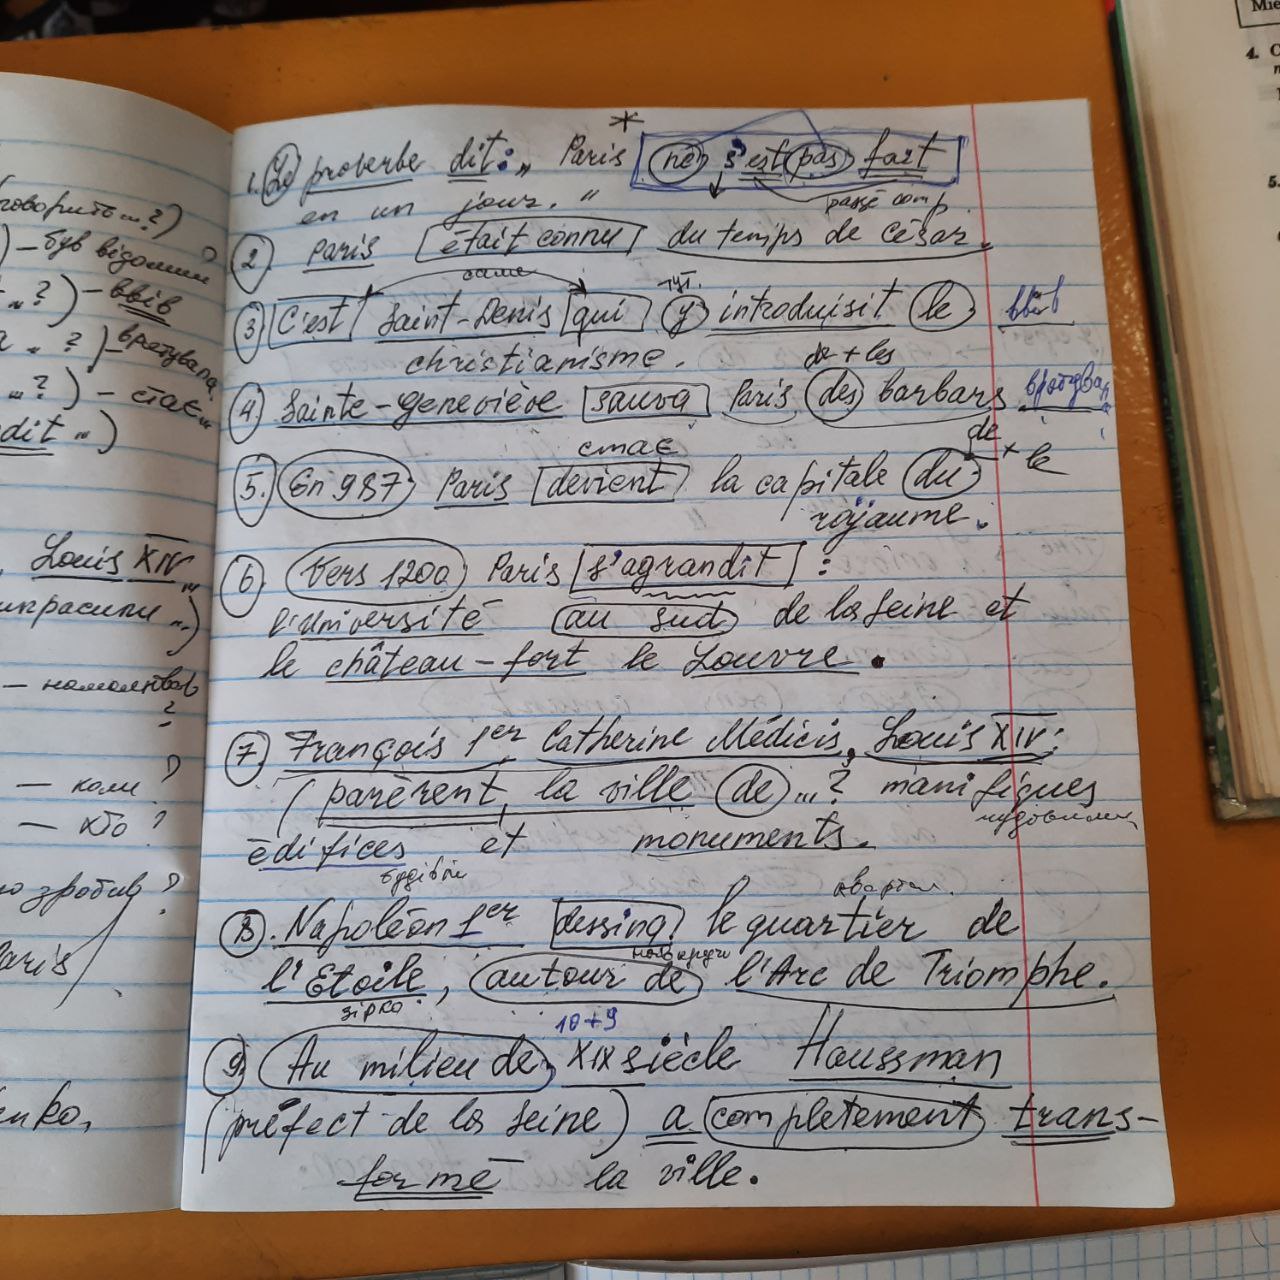 говорить...?)
) – був відомим
„ ? ) – ввів
„ ? ) – врятувала
...? ) – стає
dit „ )
Louis XIV
прикрасили „ )
— намалював ?
— коли ?
— хто ?
зробив ?
Paris
enko,
Mie
4. C
5.
*
1. Le proverbe dit: „ Paris ne s'est pas fait
passé comp.
en un jour. "
2. Paris était connu du temps de César.
саме
тут.
3 C'est Saint-Denis qui y introduisit le ввів
christianisme. de + les
4 Sainte-Geneviève sauva Paris des barbars врятувала
стає de + le
5. En 987 Paris devient la capitale du
royaume.
6 Vers 1200 Paris s'agrandit :
l'université au sud de la Seine et
le château-fort le Louvre.
7. François 1er, Catherine Médicis, Louis XIV:
(parèrent la ville de ...? manifiques
чудовими
édifices et monuments.
будівлі
квартал.
8. Napoléon 1er dessina le quartier de
навкруги
l'Etoile, autour de l'Arc de Triomphe.
зірка
10+9
9. Au milieu de XIX siècle Haussman
(préfect de la Seine) a completement trans-
formé la ville.